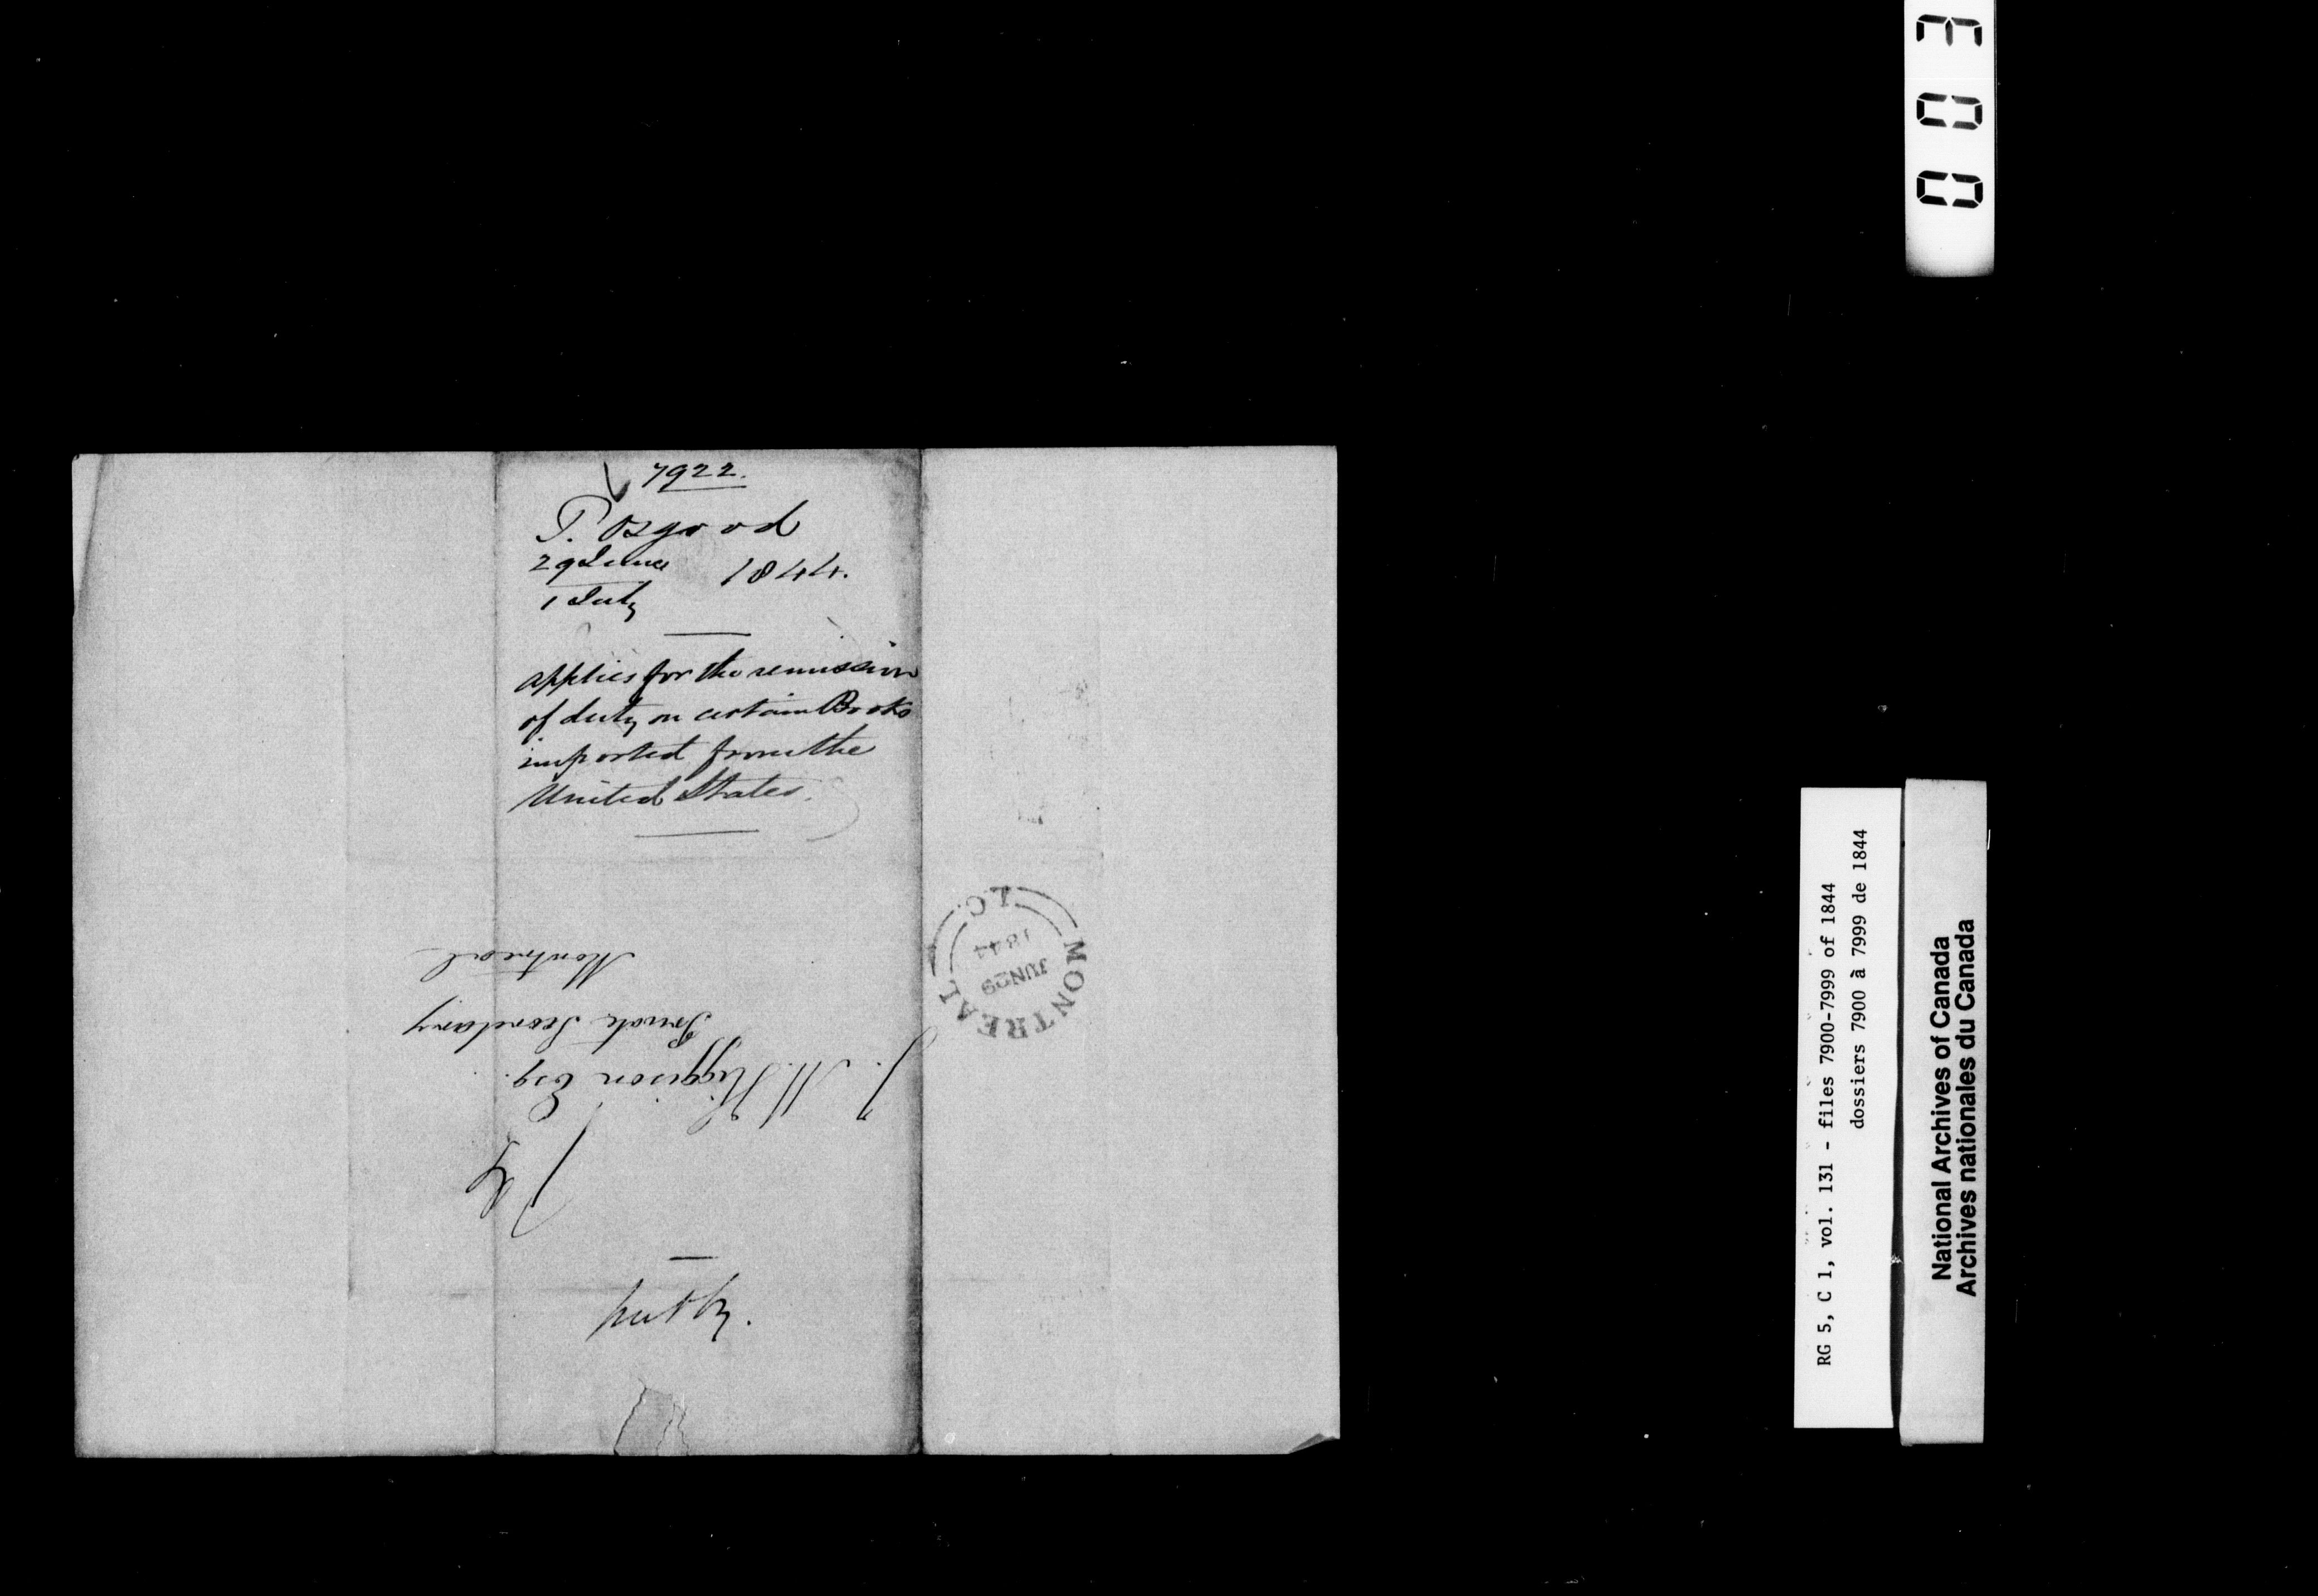 7922.
T. Osgood
29 June 1844.
1 July
applies for the remission
of duty on certain Books
imported from the
United States.
J. M. Higginson Esq.
Private Secretary
Montreal
put by.
MONTREAL L.C.
JUN 29
1844
003
RG 5, C 1, vol. 131 - files 7900-7999 of 1844
dossiers 7900 à 7999 de 1844
National Archives of Canada
Archives nationales du Canada